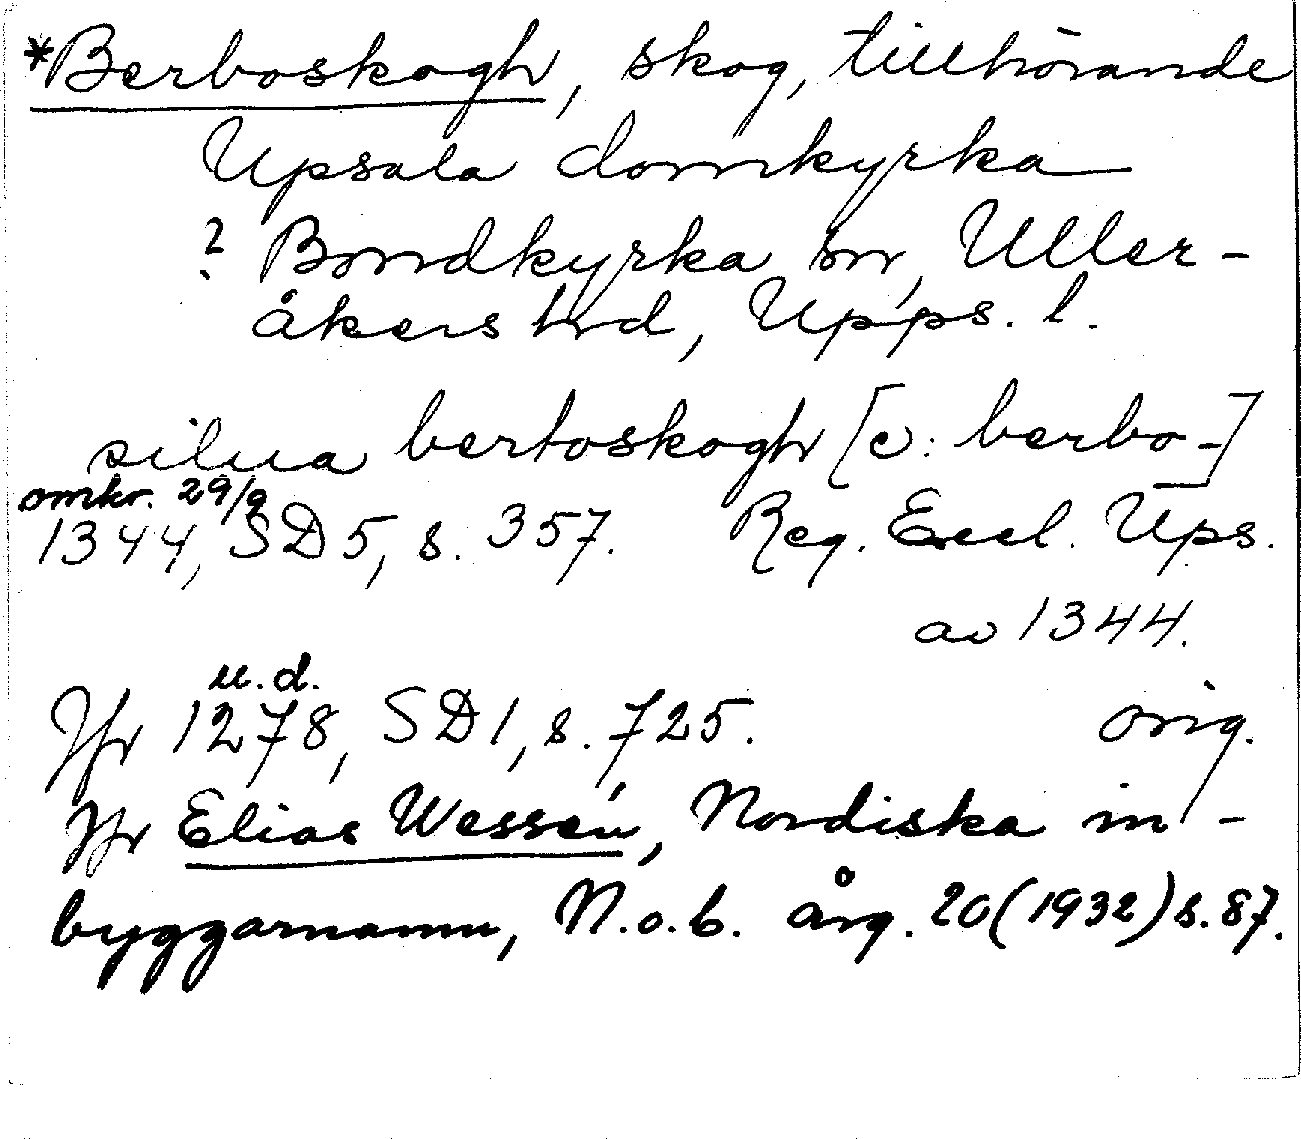 *Berboskogh, skog, tillhörande
Upsala domkyrka
? Bondkyrka sn, Uller-
åkers hrd, Upps. l.
silua bertoskogh [ɔ: berbo-]
omkr. 29/9
1344, SD 5, s. 357. Reg. Eccl. Ups.
av 1344.
u. d.
Jfr 1278, SD 1, s. 725. orig.
Jfr Elias Wessén, Nordiska in-
byggarnamn, N.o.b. årg. 20 (1932) s. 87.